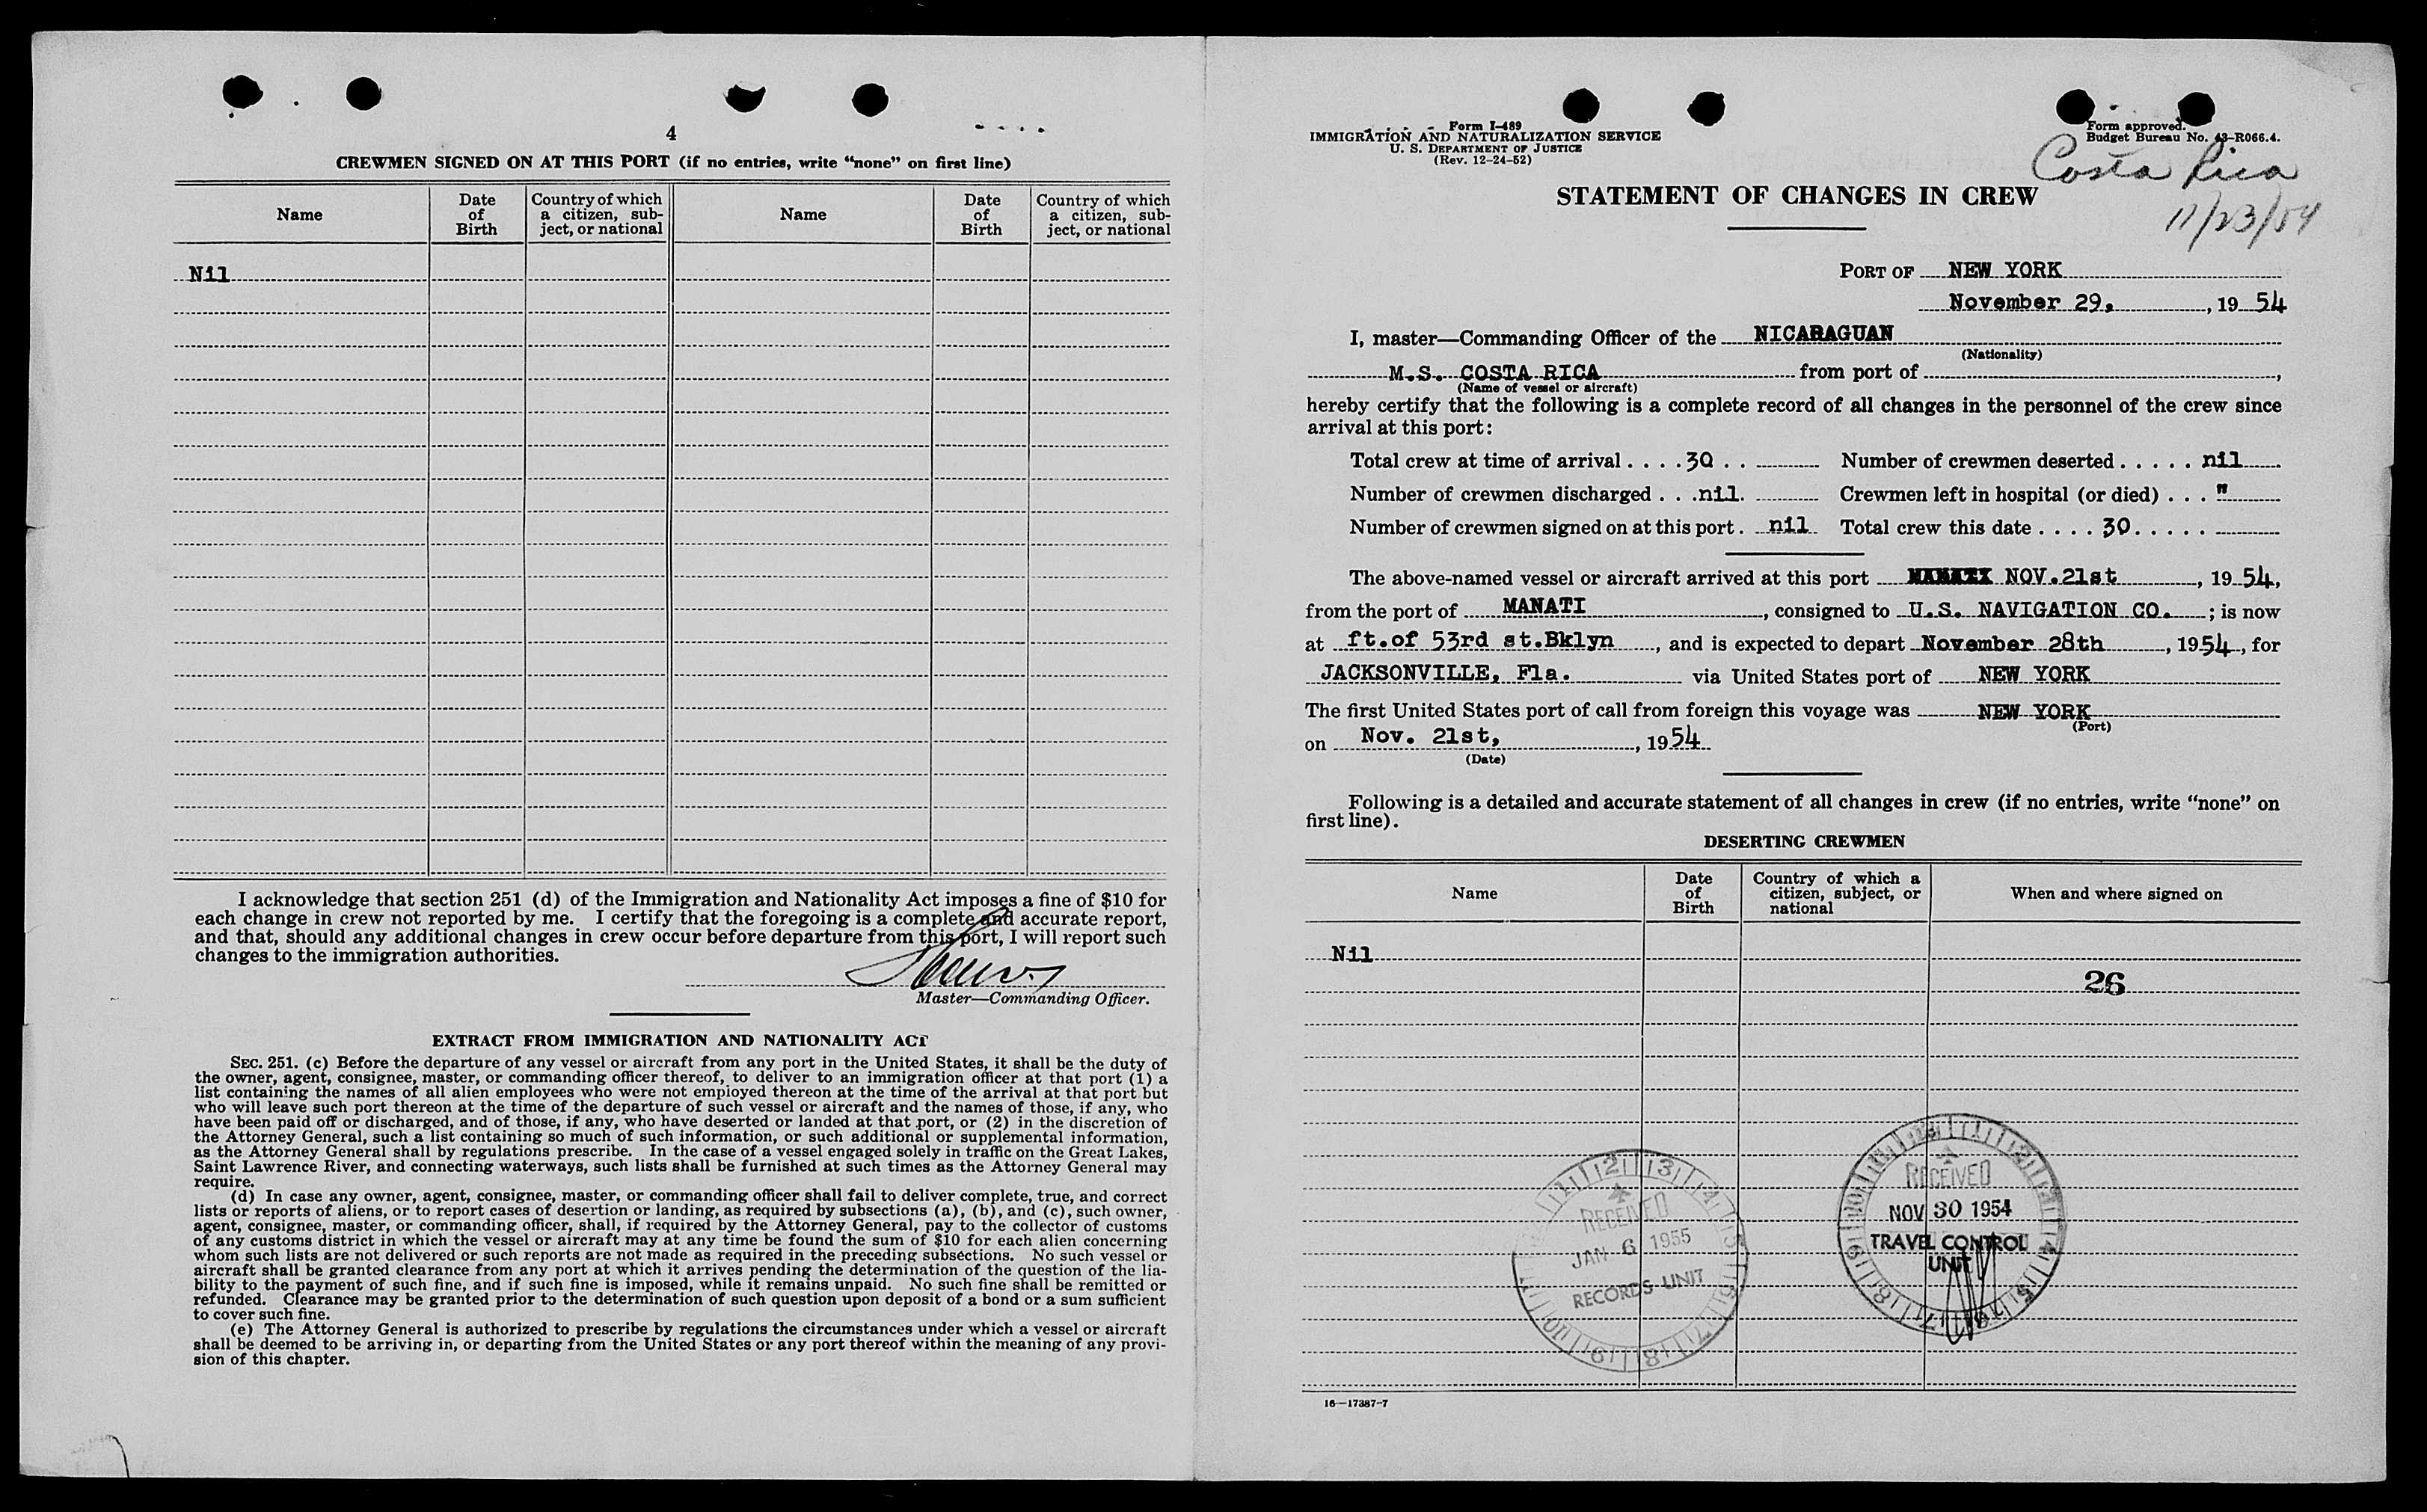 4
CREWMEN SIGNED ON AT THIS PORT (if no entries, write “none” on first line)
Name
Date of Birth
Country of which a citizen, subject, or national
Name
Date of Birth
Country of which a citizen, subject, or national
Nil
I acknowledge that section 251 (d) of the Immigration and Nationality Act imposes a fine of $10 for
each change in crew not reported by me. I certify that the foregoing is a complete and accurate report,
and that, should any additional changes in crew occur before departure from this port, I will report such
changes to the immigration authorities.
Master—Commanding Officer.
EXTRACT FROM IMMIGRATION AND NATIONALITY ACT
SEC. 251. (c) Before the departure of any vessel or aircraft from any port in the United States, it shall be the duty of
the owner, agent, consignee, master, or commanding officer thereof, to deliver to an immigration officer at that port (1) a
list containing the names of all alien employees who were not employed thereon at the time of the arrival at that port but
who will leave such port thereon at the time of the departure of such vessel or aircraft and the names of those, if any, who
have been paid off or discharged, and of those, if any, who have deserted or landed at that port, or (2) in the discretion of
the Attorney General, such a list containing so much of such information, or such additional or supplemental information,
as the Attorney General shall by regulations prescribe. In the case of a vessel engaged solely in traffic on the Great Lakes,
Saint Lawrence River, and connecting waterways, such lists shall be furnished at such times as the Attorney General may
require.
(d) In case any owner, agent, consignee, master, or commanding officer shall fail to deliver complete, true, and correct
lists or reports of aliens, or to report cases of desertion or landing, as required by subsections (a), (b), and (c), such owner,
agent, consignee, master, or commanding officer, shall, if required by the Attorney General, pay to the collector of customs
of any customs district in which the vessel or aircraft may at any time be found the sum of $10 for each alien concerning
whom such lists are not delivered or such reports are not made as required in the preceding subsections. No such vessel or
aircraft shall be granted clearance from any port at which it arrives pending the determination of the question of the lia-
bility to the payment of such fine, and if such fine is imposed, while it remains unpaid. No such fine shall be remitted or
refunded. Clearance may be granted prior to the determination of such question upon deposit of a bond or a sum sufficient
to cover such fine.
(e) The Attorney General is authorized to prescribe by regulations the circumstances under which a vessel or aircraft
shall be deemed to be arriving in, or departing from the United States or any port thereof within the meaning of any provi-
sion of this chapter.
Form I-489
IMMIGRATION AND NATURALIZATION SERVICE
U. S. DEPARTMENT OF JUSTICE
(Rev. 12-24-52)
Form approved.
Budget Bureau No. 43-R066.4.
Costa Rica
11/23/54
STATEMENT OF CHANGES IN CREW
PORT OF NEW YORK
November 29, , 19 54
I, master—Commanding Officer of the NICARAGUAN
(Nationality)
M.S. COSTA RICA from port of ,
(Name of vessel or aircraft)
hereby certify that the following is a complete record of all changes in the personnel of the crew since
arrival at this port:
Total crew at time of arrival . . . . 30 . . Number of crewmen deserted . . . . . nil
Number of crewmen discharged . . . nil. Crewmen left in hospital (or died) . . . "
Number of crewmen signed on at this port . nil Total crew this date . . . . 30 . . . . .
The above-named vessel or aircraft arrived at this port NOV.21st , 19 54,
from the port of MANATI , consigned to U.S. NAVIGATION CO. ; is now
at ft.of 53rd st.Bklyn , and is expected to depart November 28th , 1954 , for
JACKSONVILLE, Fla. via United States port of NEW YORK
The first United States port of call from foreign this voyage was NEW YORK
(Port)
on Nov. 21st, , 1954
(Date)
Following is a detailed and accurate statement of all changes in crew (if no entries, write “none” on
first line).
DESERTING CREWMEN
Name
Date of Birth
Country of which a citizen, subject, or national
When and where signed on
Nil
26
RECEIVED
JAN 6 1955
RECORDS UNIT
RECEIVED
NOV 30 1954
TRAVEL CONTROL
UNIT
16—17387-7